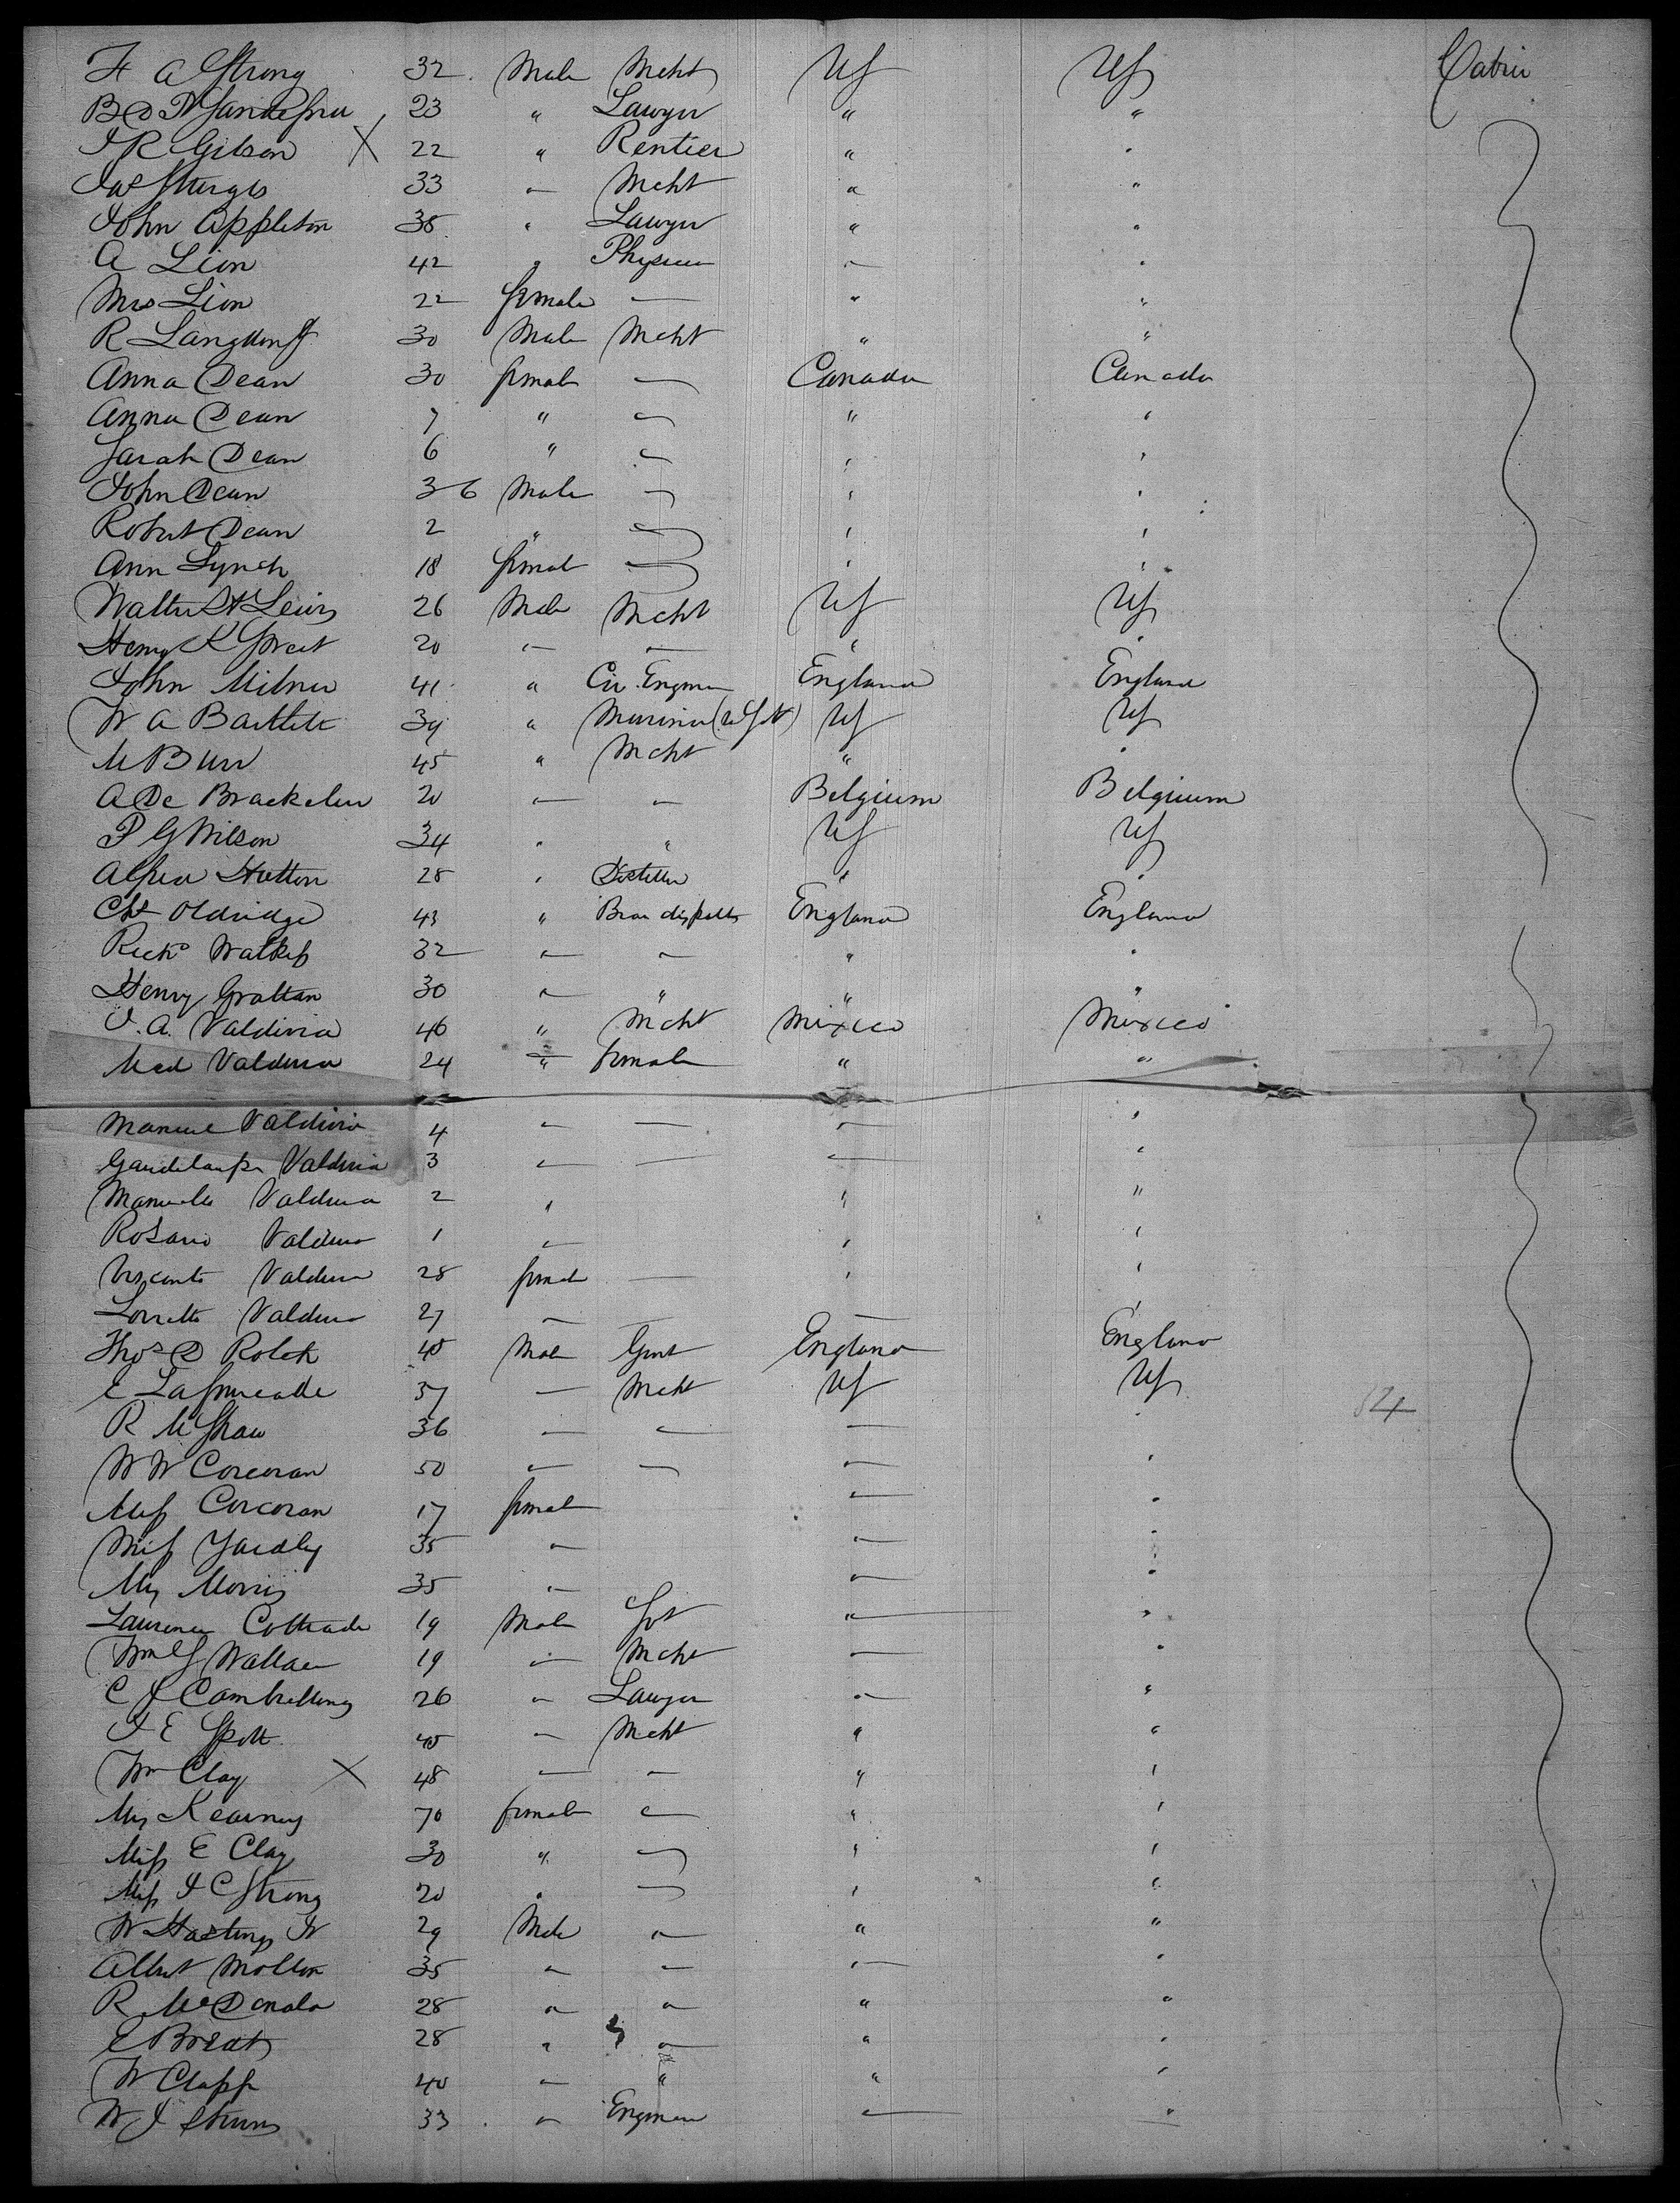 F A Strong 32 Male Mcht US US Cabin
B D 23 " Lawyer " "
J R Gibson X 22 " Rentier " "
Jas Sturges 33 " Mcht " "
John Appleton 38 " Lawyer " "
A Lion 42 " Physician " "
Mrs Lion 22 female — " "
R Langdorff 30 Male Mcht " "
Anna Dean 30 female — Canada Canada
Anna Dean 7 " — " "
Sarah Dean 6 " — " "
John Dean 36 Male — " "
Robert Dean 2 " — " "
Ann Lynch 18 female — " "
Walter St Lewis 26 Male Mcht US US
Henry K 20 " — " "
John Milner 41 " Civ. Engineer England England
W A Bartlett 39 " Mariner (USN) US US
M Burr 45 " Mcht " "
A De Braekeleer 20 " " Belgium Belgium
P G Wilson 34 " " US US
Alfred Hutton 28 " Distiller " "
Oldridge 43 " England England
Richd 32 " " " "
Henry Grattan 30 " " " "
J. A. Valdivia 40 " Mcht Mexico Mexico
Mad Valdivia 24 " female " "
Manuel Valdivia 4 " — " "
Gaudelaupe Valdivia 3 " — " "
Manuela Valdivia 2 " " "
Rosario Valdivia 1 " " "
Valdivia 28 female — " "
Loretto Valdivia 27 " — — "
Thos D Rolck 45 Male Gent England England
E 37 — Mcht US US
R M Shaw 36 — " — " 124
W W Corcoran 50 " — " "
Miss Corcoran 17 female " "
Miss Yardly 35 " " "
Mrs Morris 35 " " "
Laurence 19 Male " "
Wm S Wallace 19 " Mcht — "
C J Cambrelling 26 " Lawyer " "
J E Spott 45 " Mcht " "
Wm Clay X 48 — — " "
Mrs Kearney 70 female " " "
Miss E Clay 30 " — " "
Miss J C Strong 20 " — " "
W Hastings Jr 29 Male " " "
Albert Molton 35 " " " "
R McDonald 28 " " " "
E 28 " " " "
W Clapp 40 " " " "
W J 33 " Engineer " "